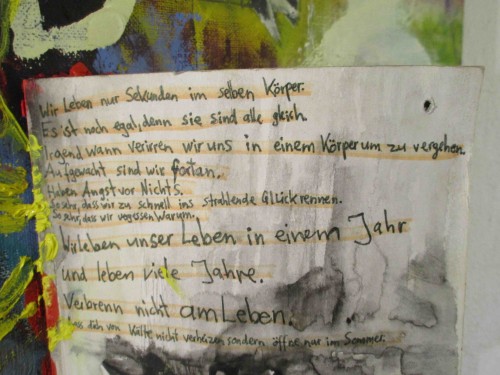 Wir Leben nur Sekunden im selben Körper.
Es ist noch egal, denn sie sind alle gleich.
Irgend wann verirren wir uns in einem Körper um zu vergehen.
Aufgewacht sind wir fortan.
Haben Angst vor Nichts.
So sehr, dass wir zu schnell ins strahlende Glück rennen.
So sehr, dass wir vergessen Warum.
Wir leben unser Leben in einem Jahr
und leben viele Jahre.
Verbrenn nicht am Leben.
Lass dich von Kälte nicht verheizen sondern öffne nur im Sommer.